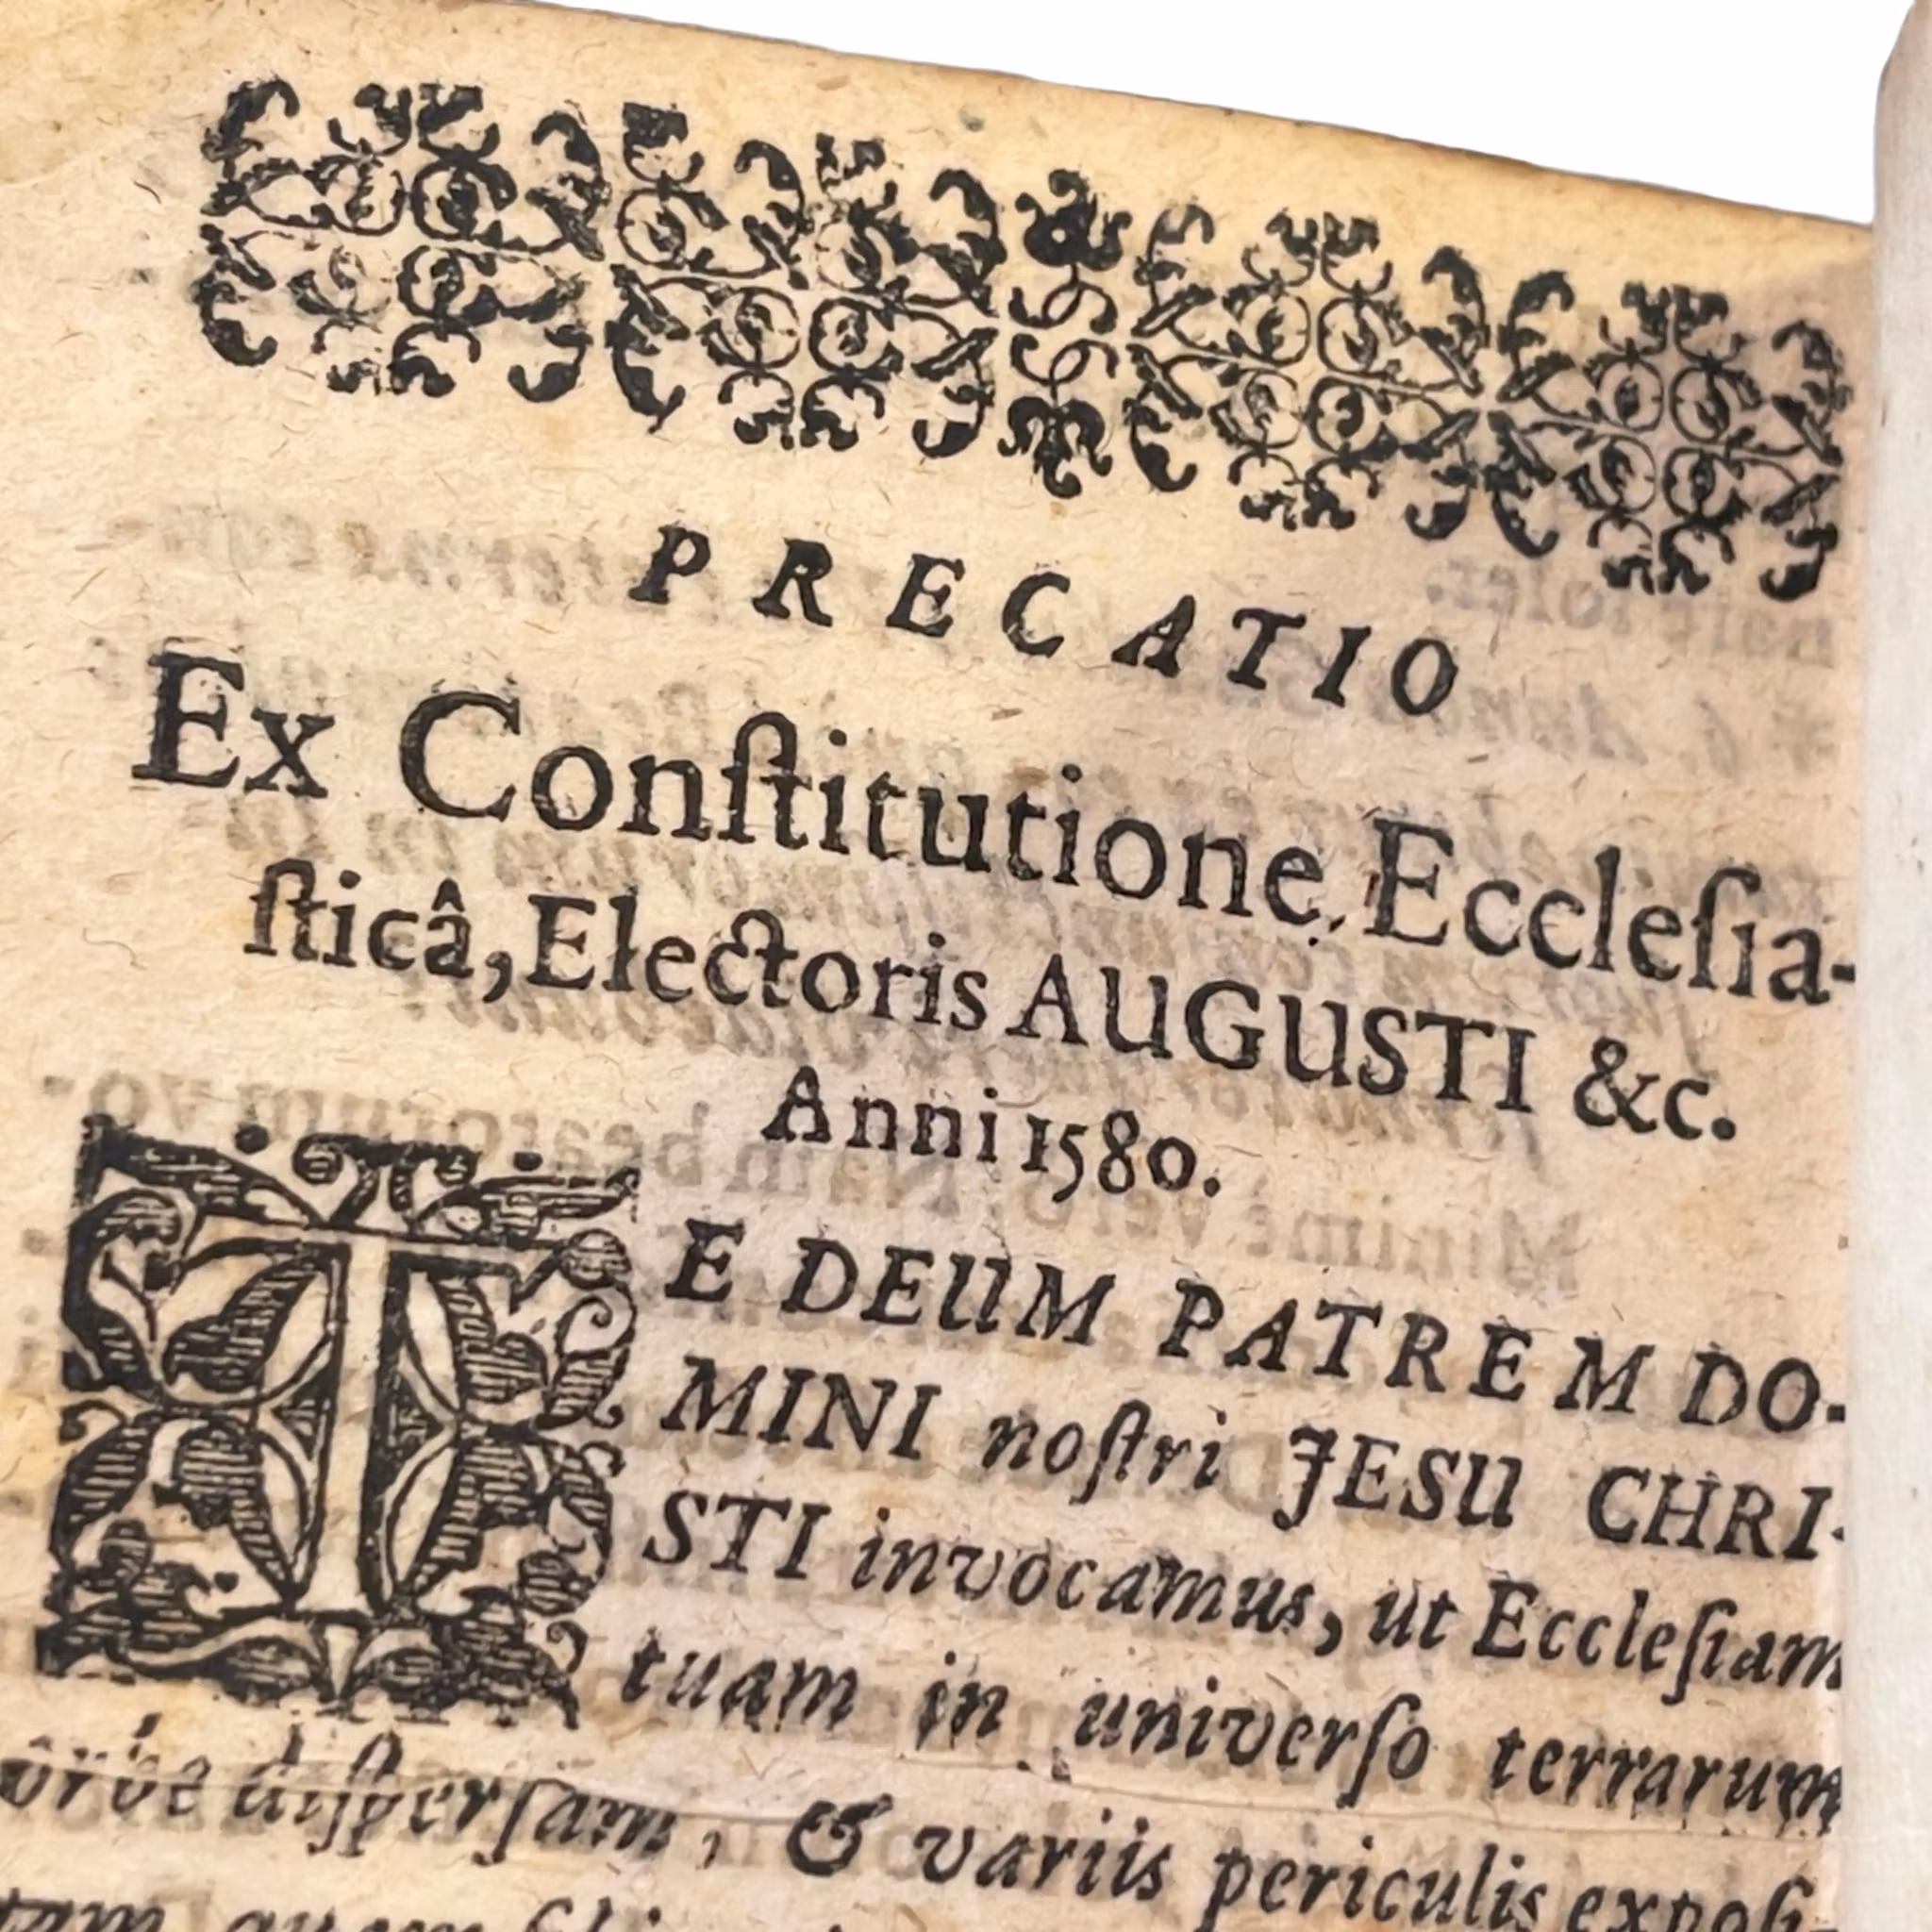 PRECATIO
Ex Conſtitutione Eccleſia-
ſticâ, Electoris AUGUSTI &c.
Anni 1580.
TE DEUM PATREM DO-
MINI noſtri JESU CHRI-
STI invocamus, ut Eccleſiam
tuam in univerſo terrarum
orbe diſperſam, & variis periculis expoſi-
tam